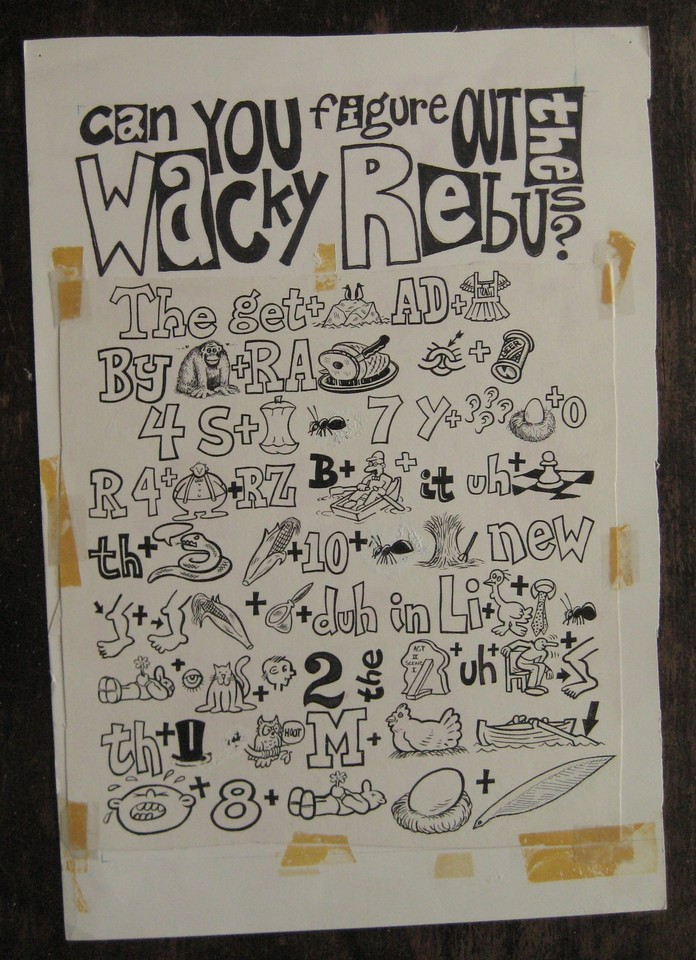 can YOU figure OUT the
Wacky Rebus?
The get+ AD+
By +RA +
4 S+ 7 Y+ +O
R 4+ +RZ B+ + it uh+
th+ +10+ new
+ + +duh in Li+ +
+ + 2 the ACT II SCENE I +uh+ +
th+ + HOOT M+
+8+ +